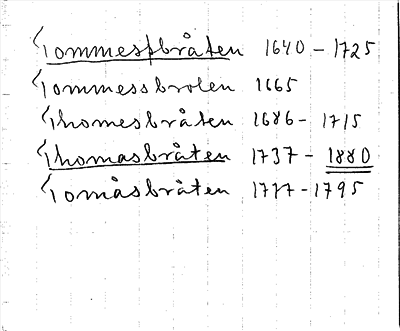 Tommesbråten 1640 - 1725
Tommessbroten 1665
Thomesbråten 1686 - 1715
Thomasbråten 1737 - 1880
Tomåsbråten 1777 - 1795